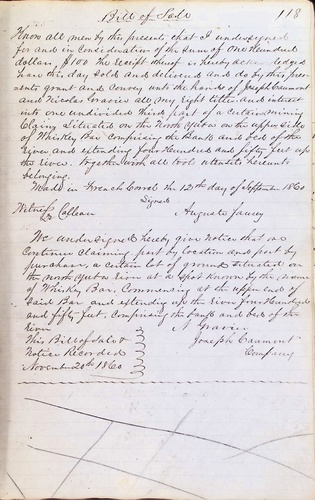 Bill of Sale
118
Know all men by this presents that I undersigned
for and in Consideration of the Sum of One Hundred
dollars, $100 the receipt thereof is hereby acknowledged
have this day Sold and delivered and do by this pres-
ents grant and Convey unto the hands of Joseph Caumont
and Nicolas Gravier all my right titles and interest
into one undivided third part of a certain mining
Claim situated on the North Yuba on the upper side
of Whiskey Bar Comprising the bank and bed of the
river and extending four Hundred and fifty feet up
the river. together with all tool utentils hereunto
belonging.
Made in French Corral the 12th day of September 1860
Signed
Witness
Auguste
We undersigned hereby give Notice that we
Continue claiming part by location and part by
purchase, a certain lot of ground situated on
the North Yuba river at a spot known by the name
of Whiskey Bar, Commencing at the upper end of
Said Bar and extending up the river four Hundred
and fifty feet. Comprising the bank and bed of the
river
N Gravier
This Bill of Sale &
Joseph Caumont
Notice Recorded
Company
November 20th 1860